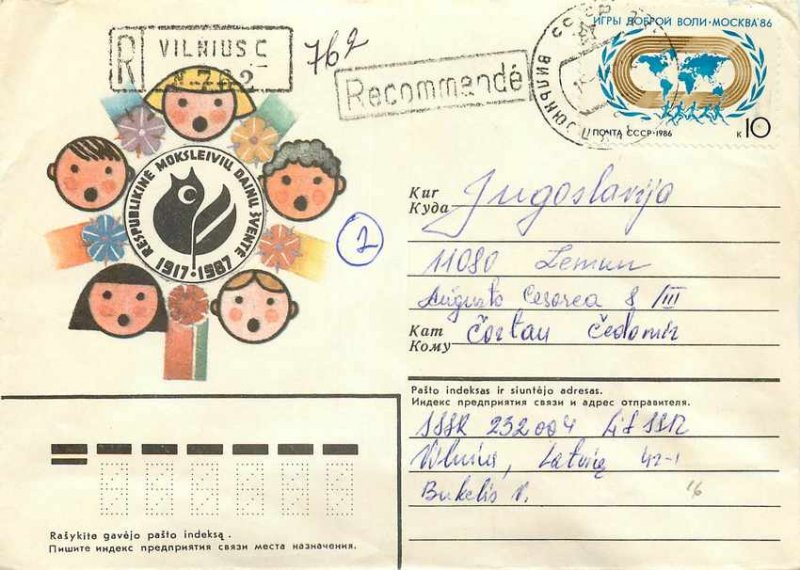 R
VILNIUS C
N. 762
762
Recommandé
СССР
ВИЛЬНЮС
ИГРЫ ДОБРОЙ ВОЛИ·МОСКВА'86
ПОЧТА СССР·1986
К 10
RESPUBLIKINĖ MOKSLEIVIŲ DAINŲ ŠVENTĖ
1917·1987
1
Kur
Куда
Jugoslavija
11080 Zemun
Augusta Cesarca 8/III
Kam
Кому
Čortan Čedomir
Pašto indeksas ir siuntėjo adresas.
Индекс предприятия связи и адрес отправителя.
SSSR 232004 Lit SSR
Vilnius, Latvių 42-1
Bukelis V.
16
Rašykite gavėjo pašto indeksą.
Пишите индекс предприятия связи места назначения.